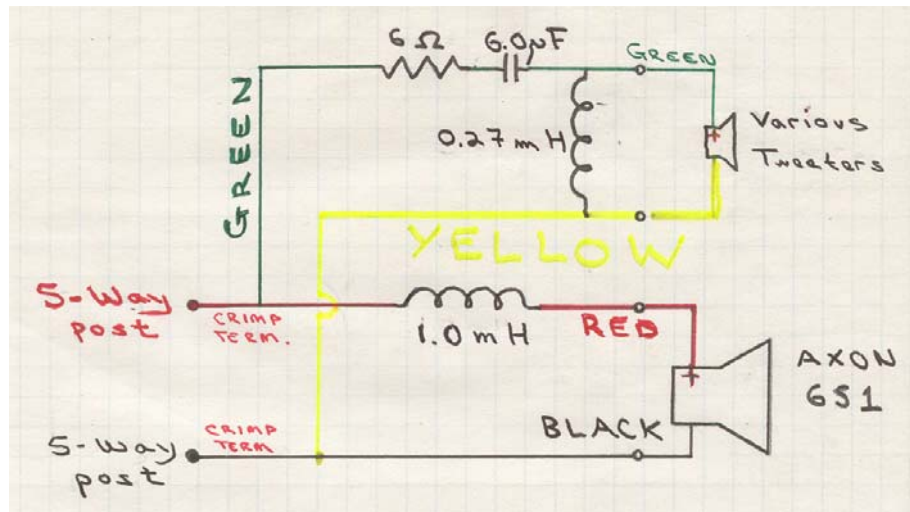 6 Ω 6.0µF
GREEN
GREEN
0.27 mH
Various
Tweeters
YELLOW
5-Way
post
CRIMP
TERM.
1.0 mH
RED
+
+
AXON
6S1
BLACK
5-Way
post
CRIMP
TERM